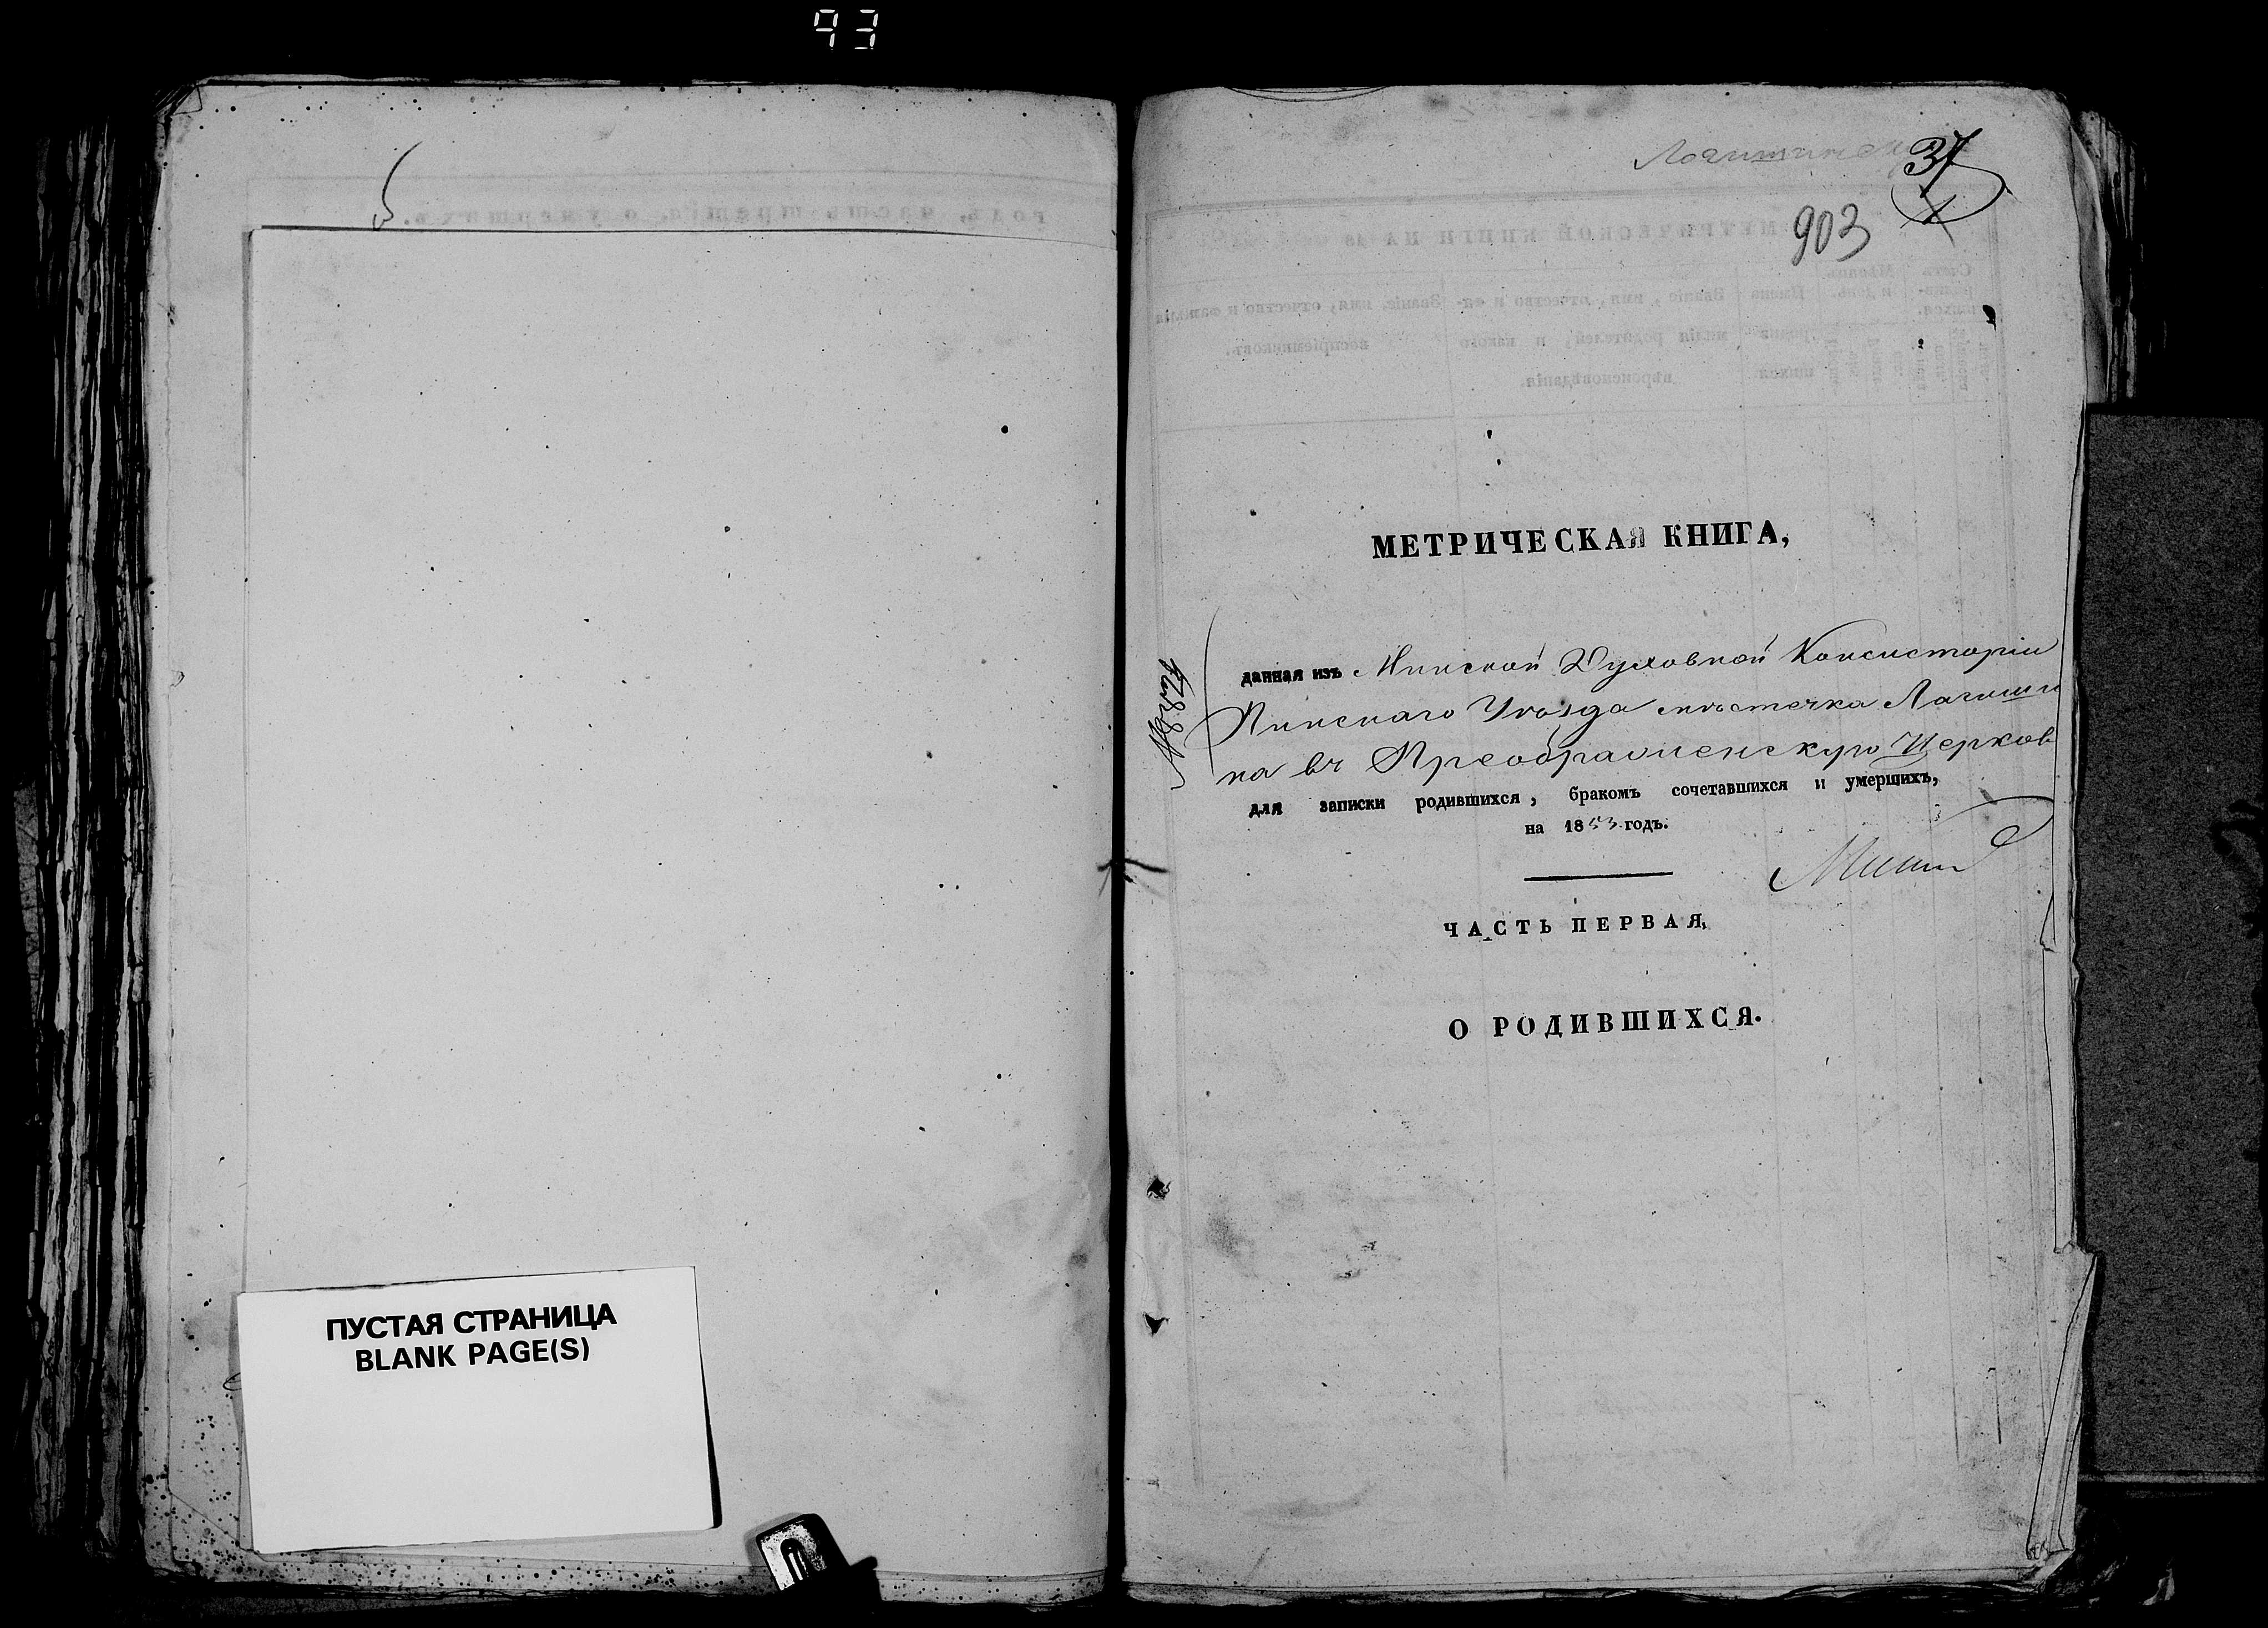 93
ПУСТАЯ СТРАНИЦА
BLANK PAGE(S)
37
903
МЕТРИЧЕСКАЯ КНИГА,
данная изъ Минской Духовной Консисторіи
Пинскаго Уѣзда мѣстечка Лагиши
на въ Преображенскую Церковь
для записки родившихся, бракомъ сочетавшихся и умершихъ,
на 1853 годъ.
ЧАСТЬ ПЕРВАЯ,
О РОДИВШИХСЯ.